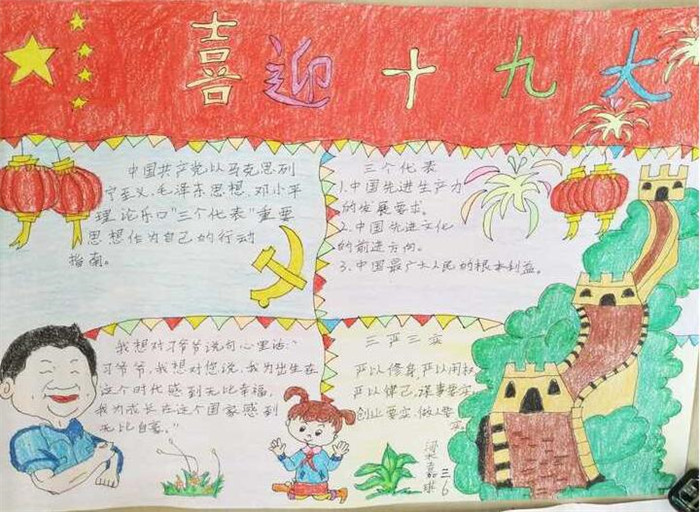 喜迎十九大
中国共产党以马克思列
宁主义、毛泽东思想、邓小平
理论和"三个代表"重要
思想作为自己的行动
指南。
三个代表
1.中国先进生产力
的发展要求。
2.中国先进文化
的前进方向。
3.中国最广大人民的根本利益。
我想对习爷爷说句心里话:
"习爷爷,我想对您说,我为出生在
这个时代感到无比幸福,
我为成长在这个国家感到
无比自豪。"
三严三实
严以修身 严以用权
严以律己,谋事要实,
创业要实,做人要
实。
梁嘉琪
三6